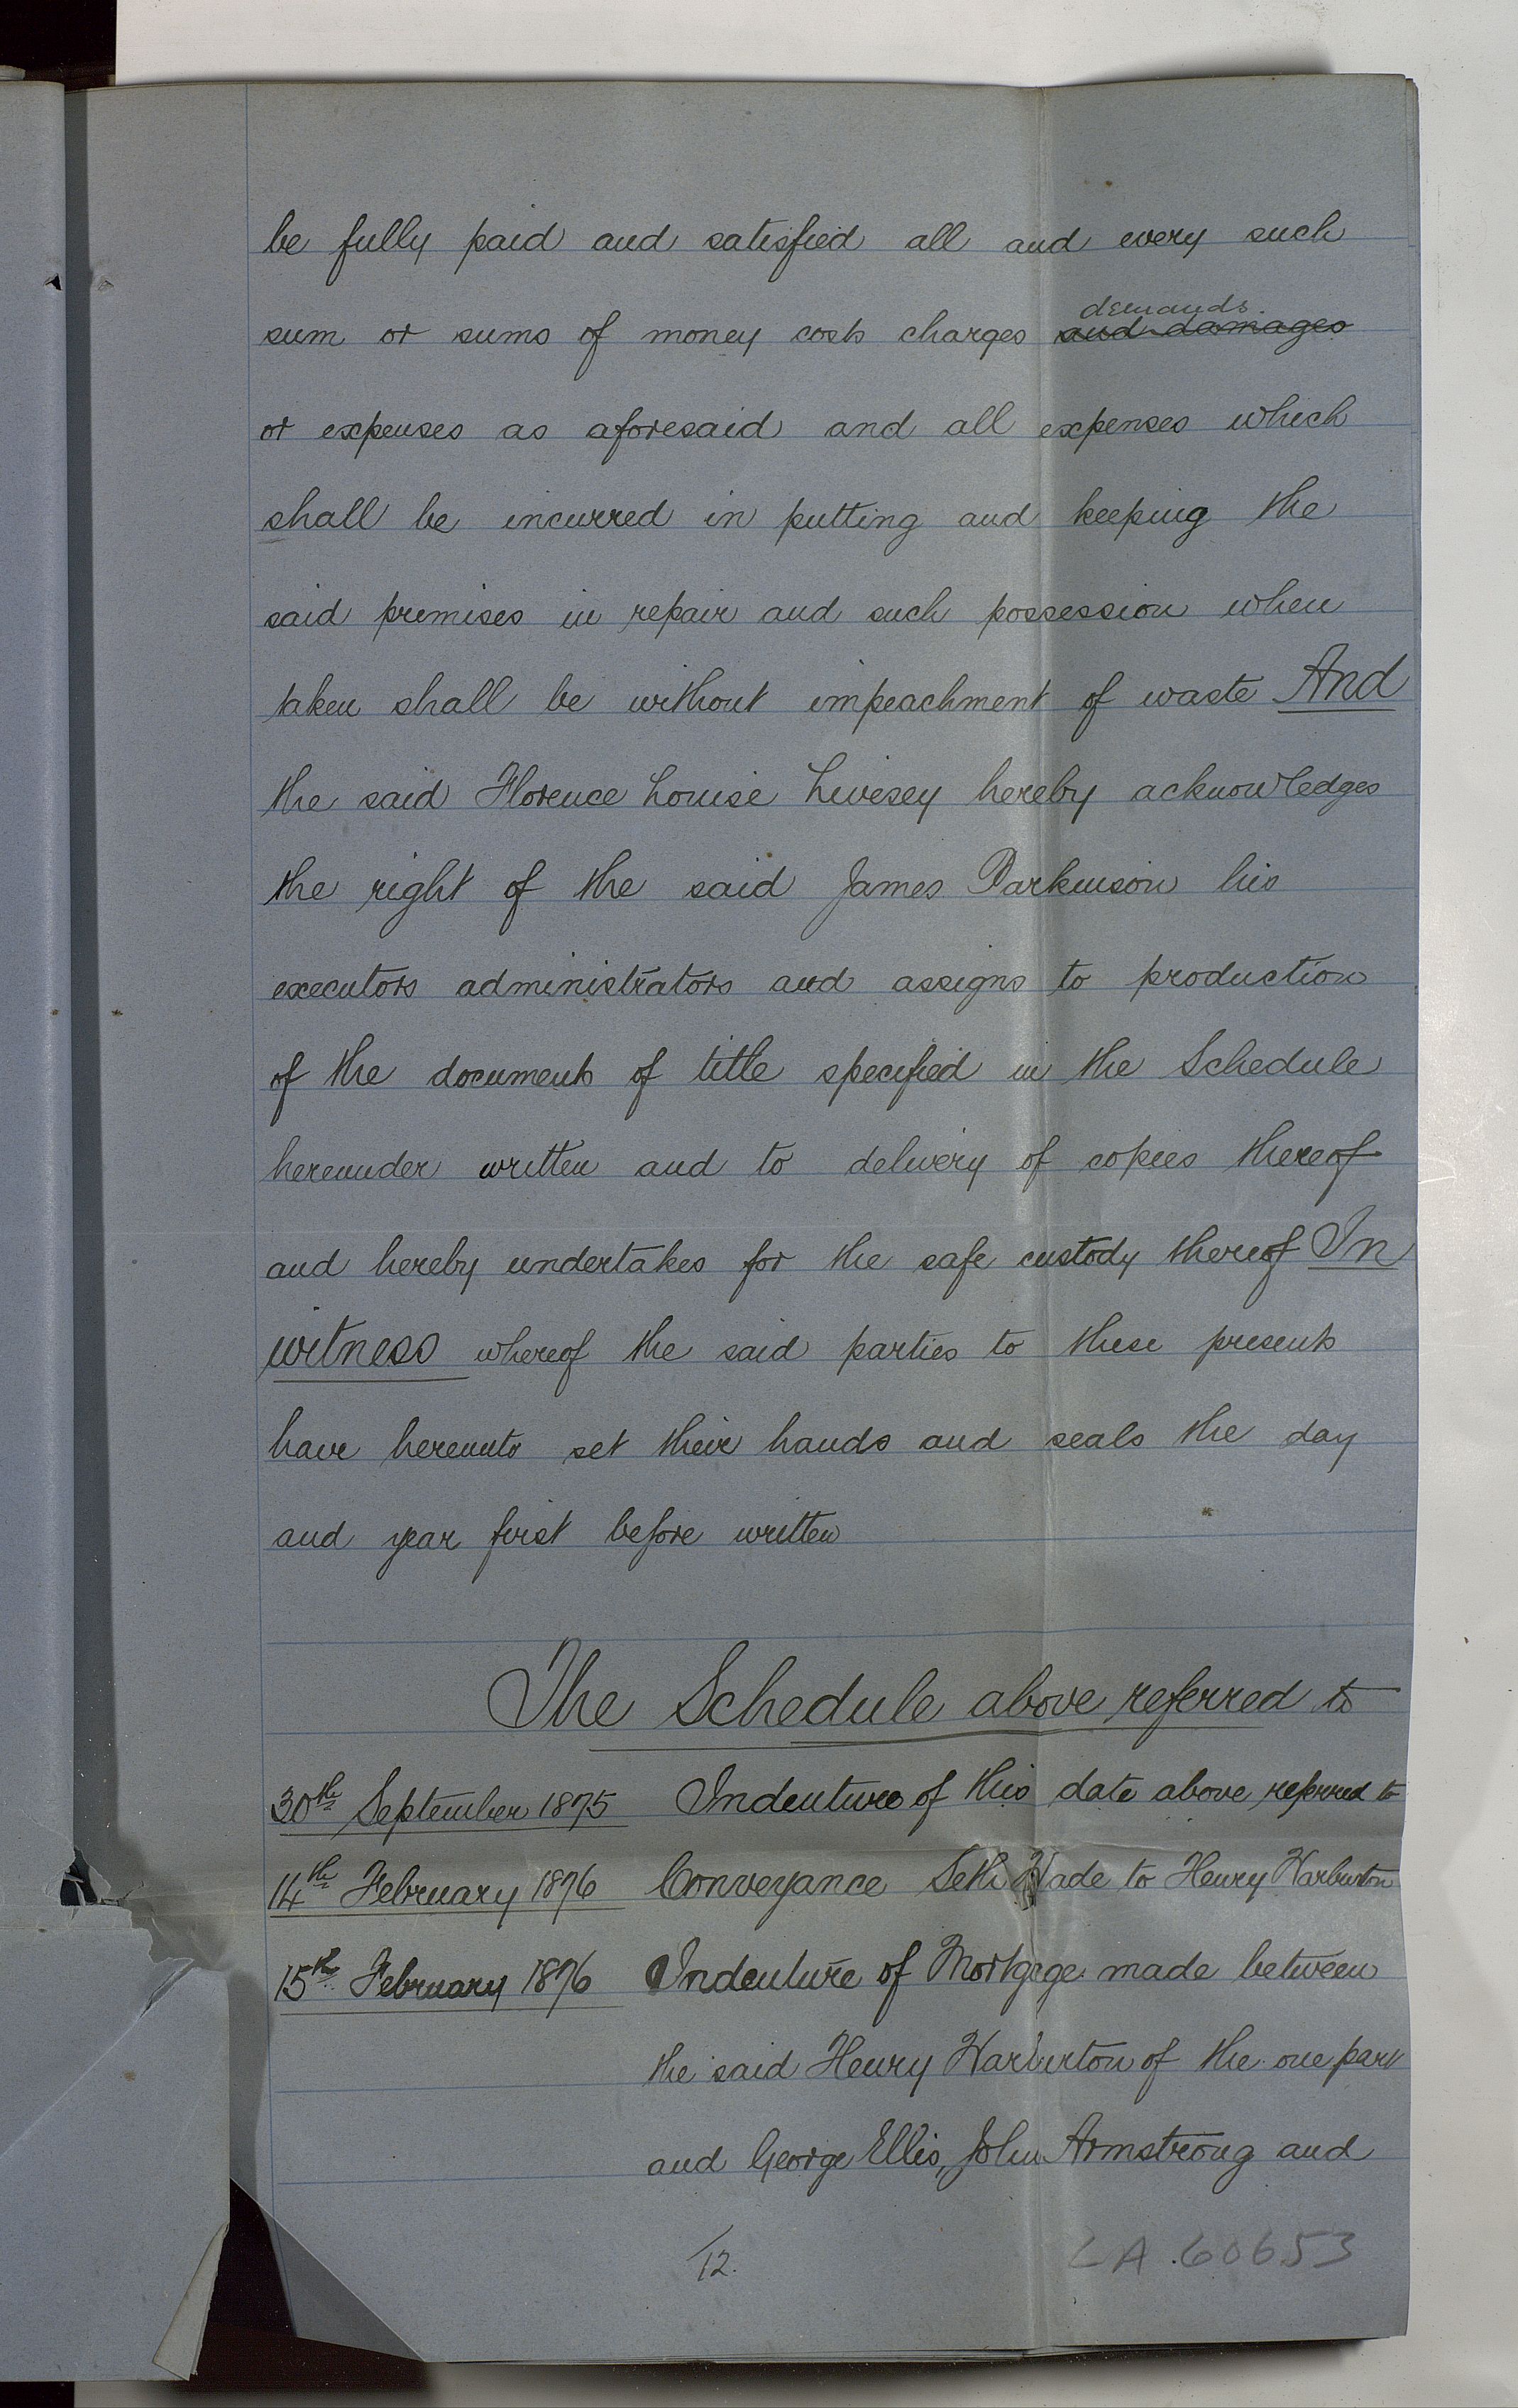 be fully paid and satisfied all and every such
demands.
sum or sums of money costs charges and damages
or expenses as aforesaid and all expenses which
shall be incurred in putting and keeping the
said premises in repair and such possession when
taken shall be without impeachment of waste And
the said Florence Louise Livesey hereby acknowledges
the right of the said James Parkinson his
executors administrators and assigns to production
of the documents of title specified in the Schedule
hereunder written and to delivery of copies thereof
and hereby undertakes for the safe custody thereof In
witness whereof the said parties to these presents
have hereunto set their hands and seals the day
and year first before written
The Schedule above referred to
30th September 1875 Indenture of this date above referred to
14th February 1876 Conveyance Seth Wade to Henry Warburton
15th February 1876 Indenture of Mortgage made between
the said Henry Warburton of the one part
and George Ellis, John Armstrong and
12.
LA.60653